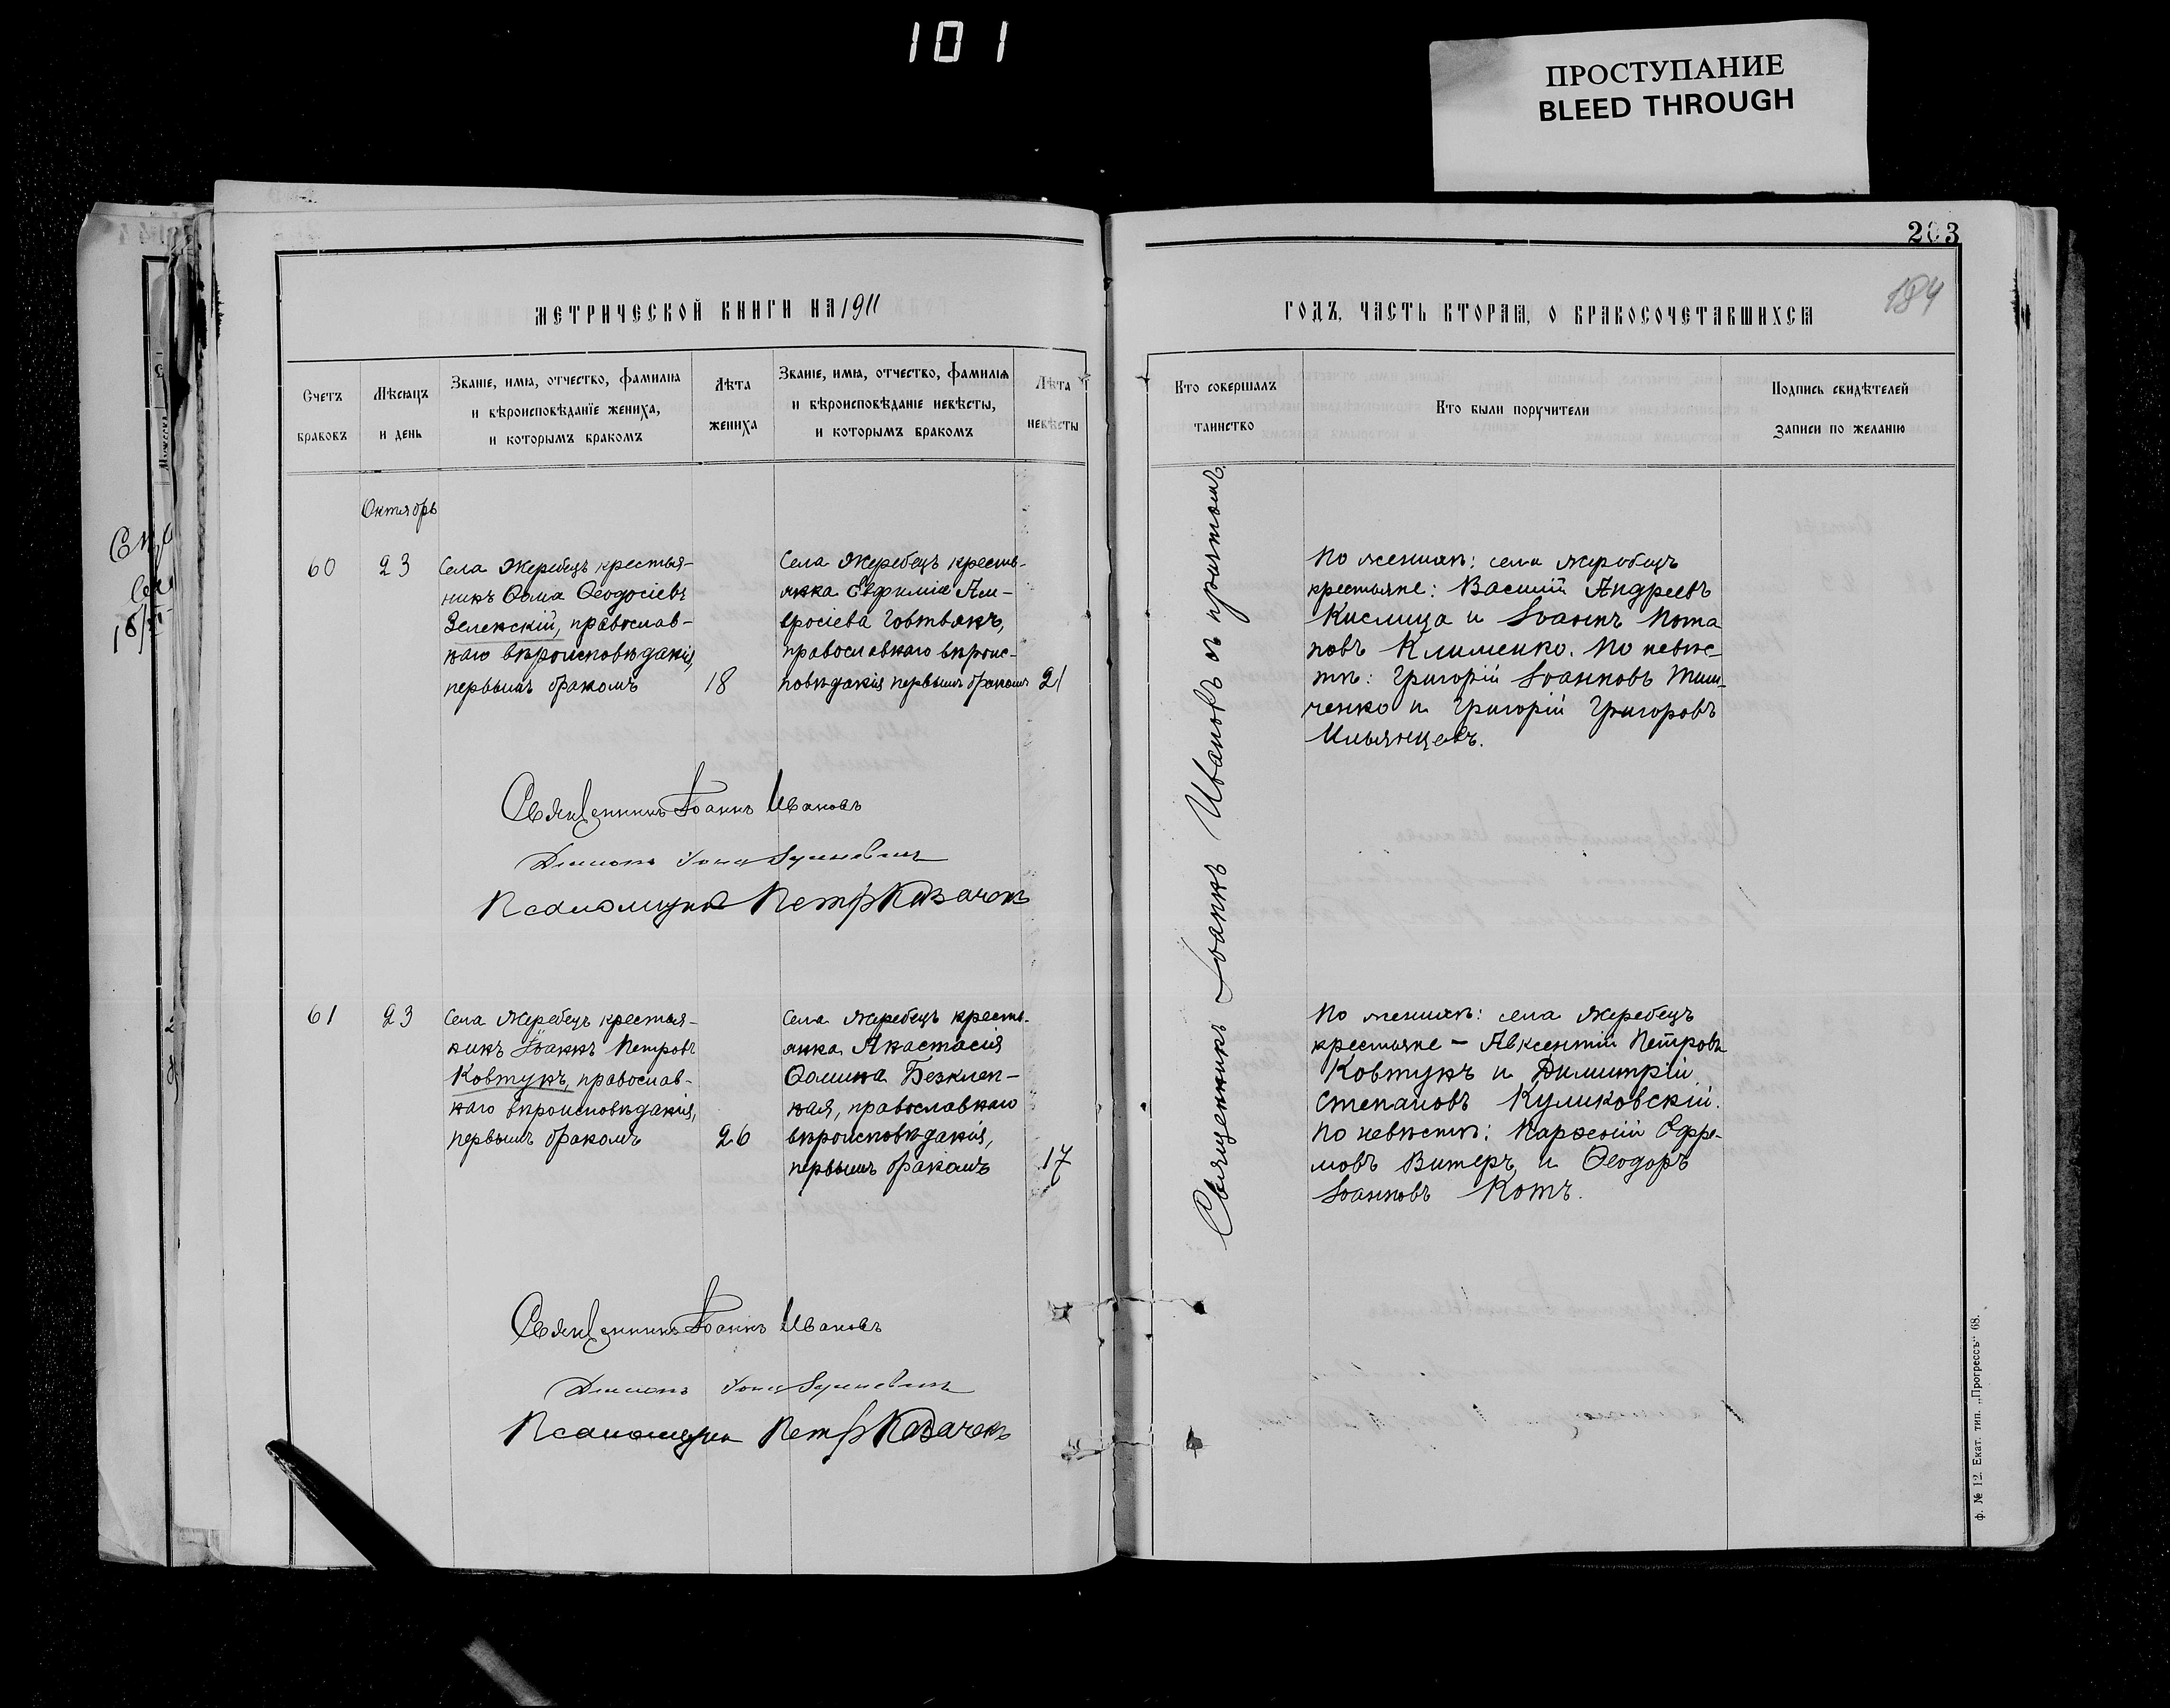 101
ПРОСТУПАНИЕ
BLEED THROUGH
203
184
МЕТРИЧЕСКОЙ КНИГИ НА 1911
ГОДЪ, ЧАСТЬ ВТОРАЯ, О БРАКОСОЧЕТАВШИХСЯ
Счетъ
браковъ
Мѣсяцъ
и день
Званіе, имя, отчество, фамилія
и вѣроисповѣданіе жениха,
и которымъ бракомъ
Лѣта
жениха
Званіе, имя, отчество, фамилія
и вѣроисповѣданіе невѣсты,
и которымъ бракомъ
Лѣта
невѣсты
Кто совершалъ
таинство
Кто были поручители
Подпись свидѣтелей
записи по желанію
Октябрь
60
23
Села Жеребецъ крестья-
нинъ Ѳома Ѳеодосіевъ
Зеленскій, православ-
наго вѣроисповѣданія,
первымъ бракомъ
18
Села Жеребецъ кресть-
янка Евфимія Ам-
вросіева Човтвянъ,
православнаго вѣроис-
повѣданія первымъ бракомъ
21
Священникъ Іоаннъ Ивановъ съ причтомъ
По женихѣ: села Жеребецъ
крестьяне: Василій Андреевъ
Кислица и Іоаннъ Пота
повъ Клименко. По невѣс-
тѣ: Григорій Іоанновъ Тим-
ченко и Григорій Григоровъ
Ильянцевъ.
Священникъ Іоаннъ Ивановъ
Діаконъ Іона
Псаломщикъ Петръ Казачекъ
61
23
Села Жеребецъ крестья-
нинъ Іоаннъ Петровъ
Ковтунъ, православ-
наго вѣроисповѣданія,
первымъ бракомъ
26
Села Жеребецъ кресть-
янка Анастасія
Ѳомина Безклеп-
ная, православнаго
вѣроисповѣданія,
первымъ бракомъ
17
По женихѣ: села Жеребецъ
крестьяне – Авксентій Петровъ
Ковтунъ и Димитрій
Степановъ Куликовскій.
По невѣстѣ: Парѳеній Ефре-
мовъ Витеръ и Ѳеодоръ
Іоанновъ Котъ.
Священникъ Іоаннъ Ивановъ
Діаконъ Іона
Псаломщикъ Петръ Казачекъ
ф. № 12. Екат. тип. „Прогрессъ" 68.